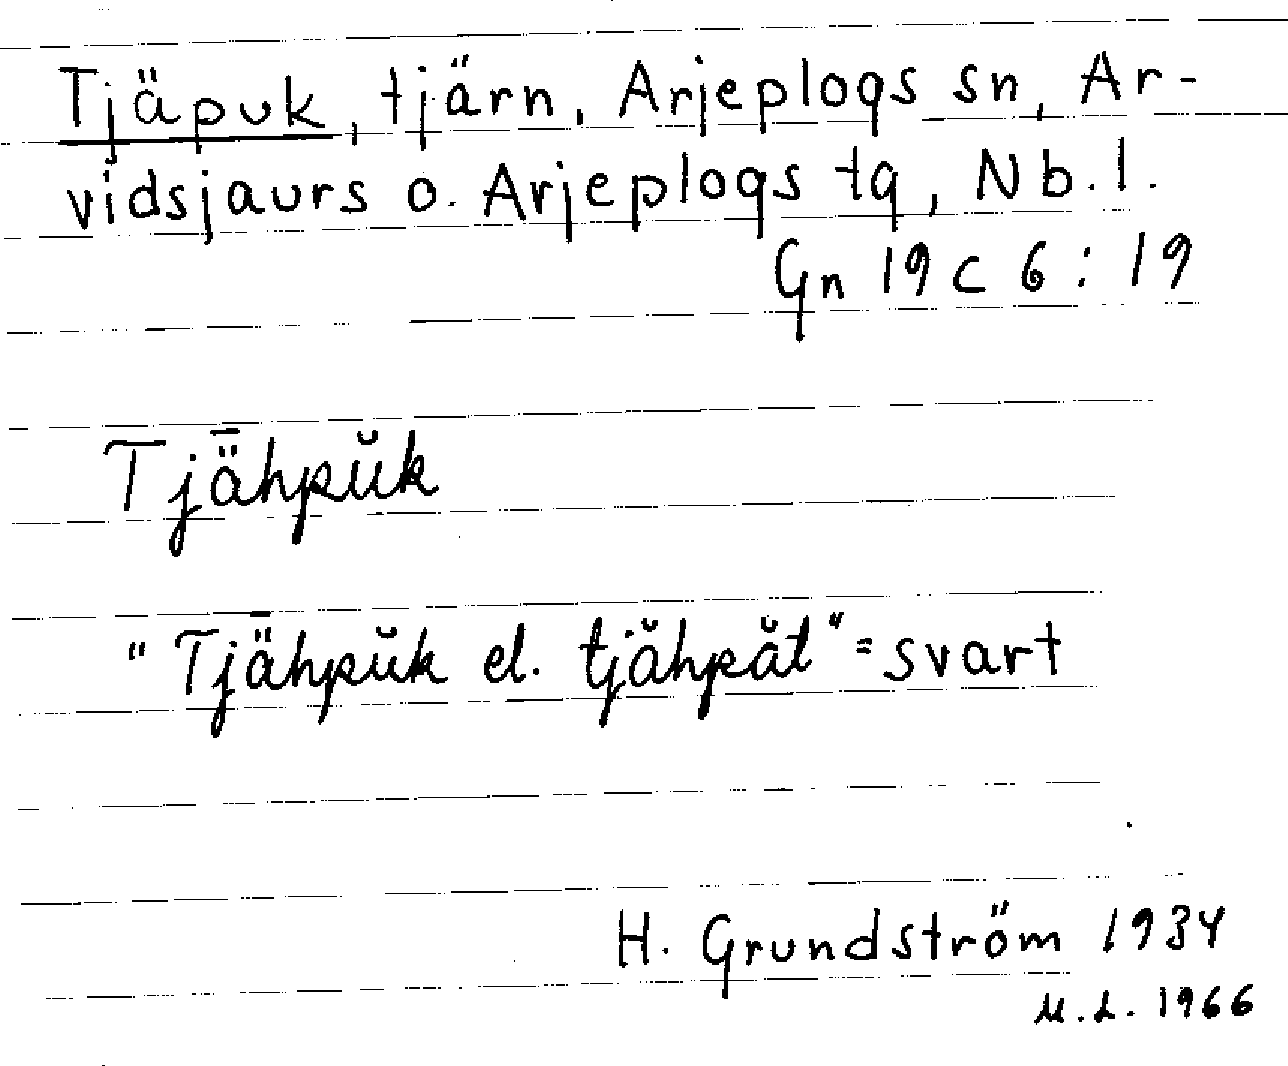 Tjäpuk, tjärn, Arjeplogs sn, Ar-
vidsjaurs o. Arjeplogs tg, Nb. l.
Gn 19 c 6 : 19
Tjǟhpŭk
"Tjǟhpŭk el. tjăhpăt" = svart
H. Grundström 1934
M. L. 1966